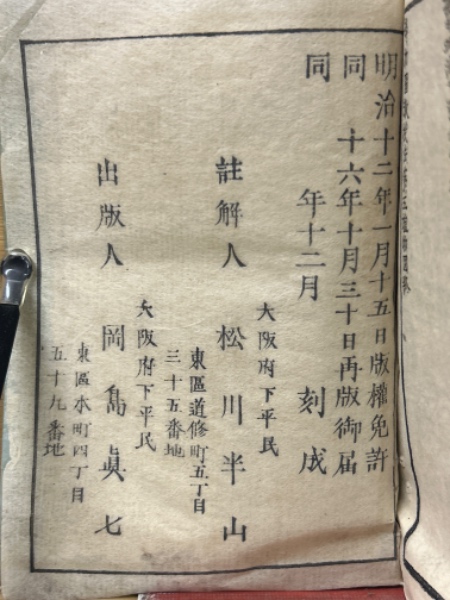 明治十二年一月十五日版權免許
同　十六年十月三十日再版御届
同　年十二月　刻成
大阪府下平民
註解人　松川半山
東區道修町五丁目
三十五番地
大阪府下平民
出版人　岡島眞七
東區本町四丁目
五十九番地